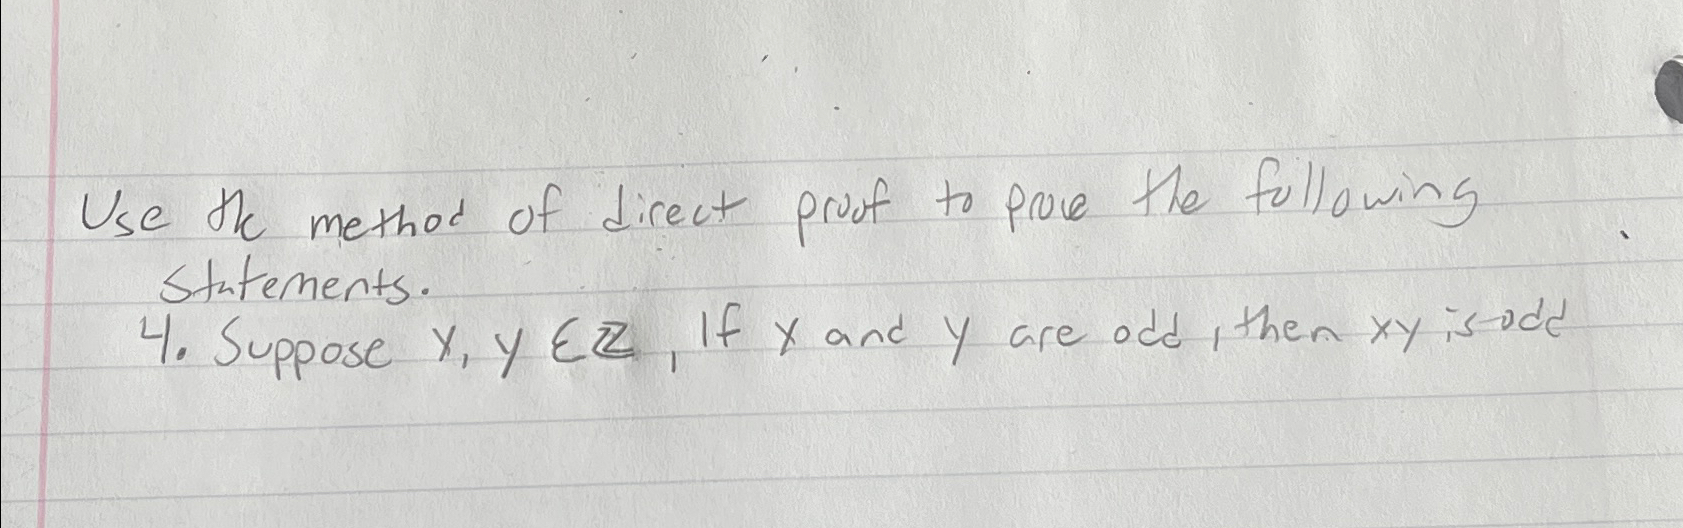 Use the method of direct proof to prove the following
statements.
4. Suppose x, y ∈ ℤ, If x and y are odd, then xy is odd